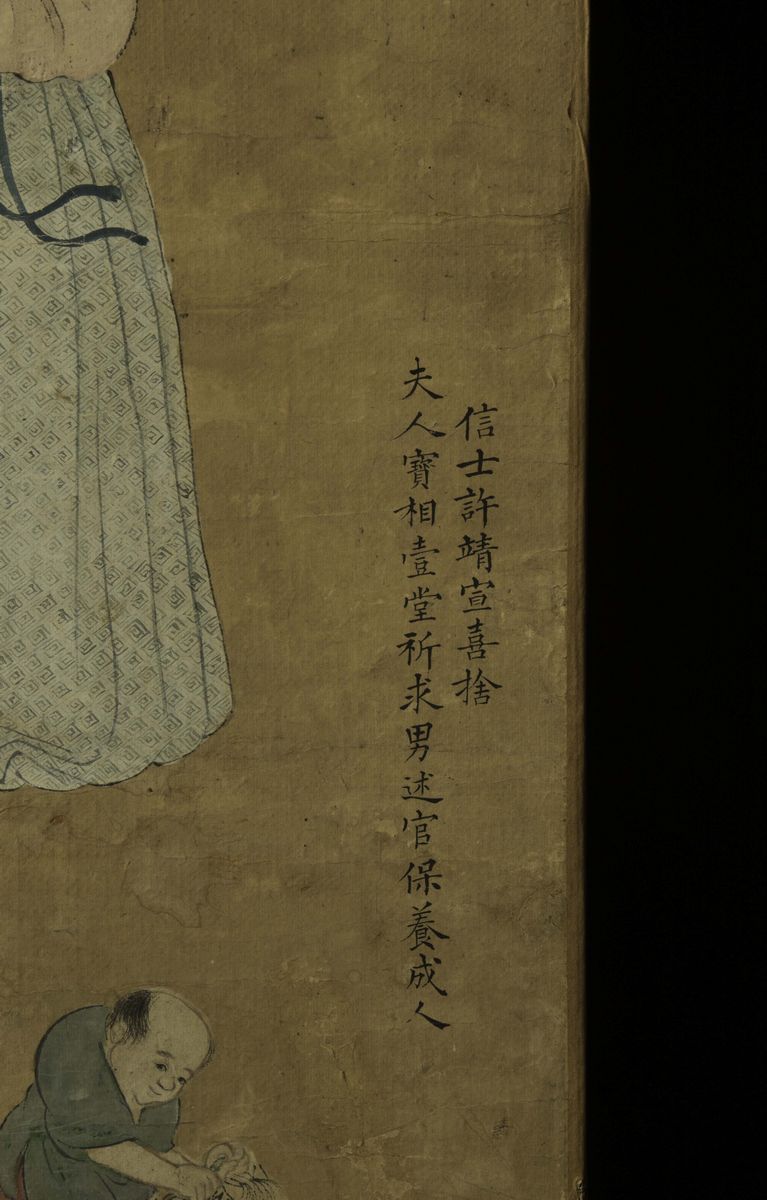 信士許靖宣喜捨
夫人寶相壹堂祈求男述官保養成人